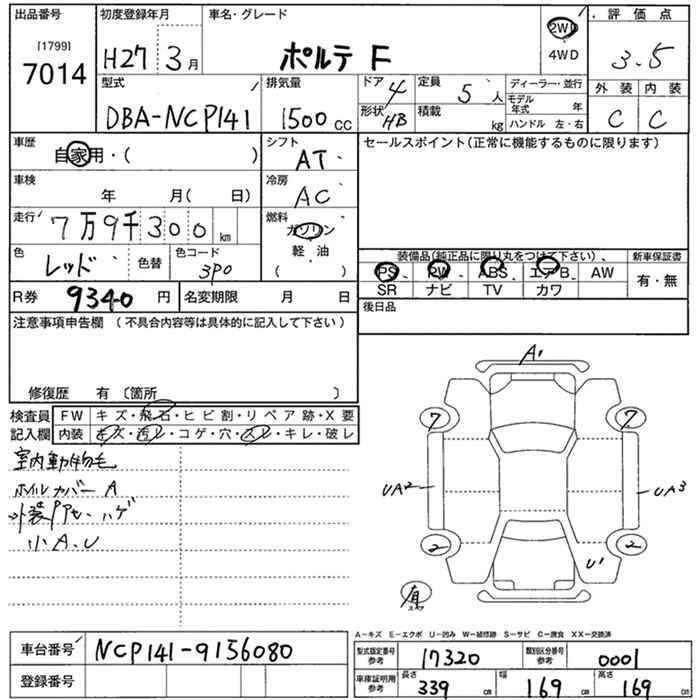 出品番号 初度登録年月 車名・グレード 評価点
[1799]
7014 H27 3月 ポルテ F 2WD 4WD 3.5
型式 排気量 ドア 4 定員 5人 ディーラー・並行 外装 内装
DBA-NCP141 1500cc 形状 HB 積載 kg モデル年式 年 C C
ハンドル 左・右
車歴 自家用・( ) シフト AT セールスポイント(正常に機能するものに限ります)
車検 年 月( 日) 冷房 AC
走行 7万9千300km 燃料 ガソリン
色 レッド 色替 色コード 3P0 軽・油 ( )
装備品(純正品に限り丸をつけて下さい)、 新車保証書
PS PW ABS エアB AW 有・無
SR ナビ TV カワ
R券 9340円 名変期限 月 日 後日品
注意事項申告欄 (不具合内容等は具体的に記入して下さい)
修復歴 有 〔箇所 〕
検査員 FW キズ・飛石・ヒビ割・リペア跡・X要
記入欄 内装 キズ・汚レ・コゲ・穴・スレ・キレ・破レ
室内動物毛
ホイルカバー A
外装 ハゲ
小A.U
A1
7 7
UA2 UA3
2 2
U1
A−キズ E−エクボ U−凹み W−補修跡 S−サビ C−腐食 XX−交換済
車台番号 NCP141-9156080
登録番号
型式指定番号 参考 17320 類別区分番号 参考 0001
車庫証明用 参考 長さ 339cm 幅 169cm 高さ 169cm